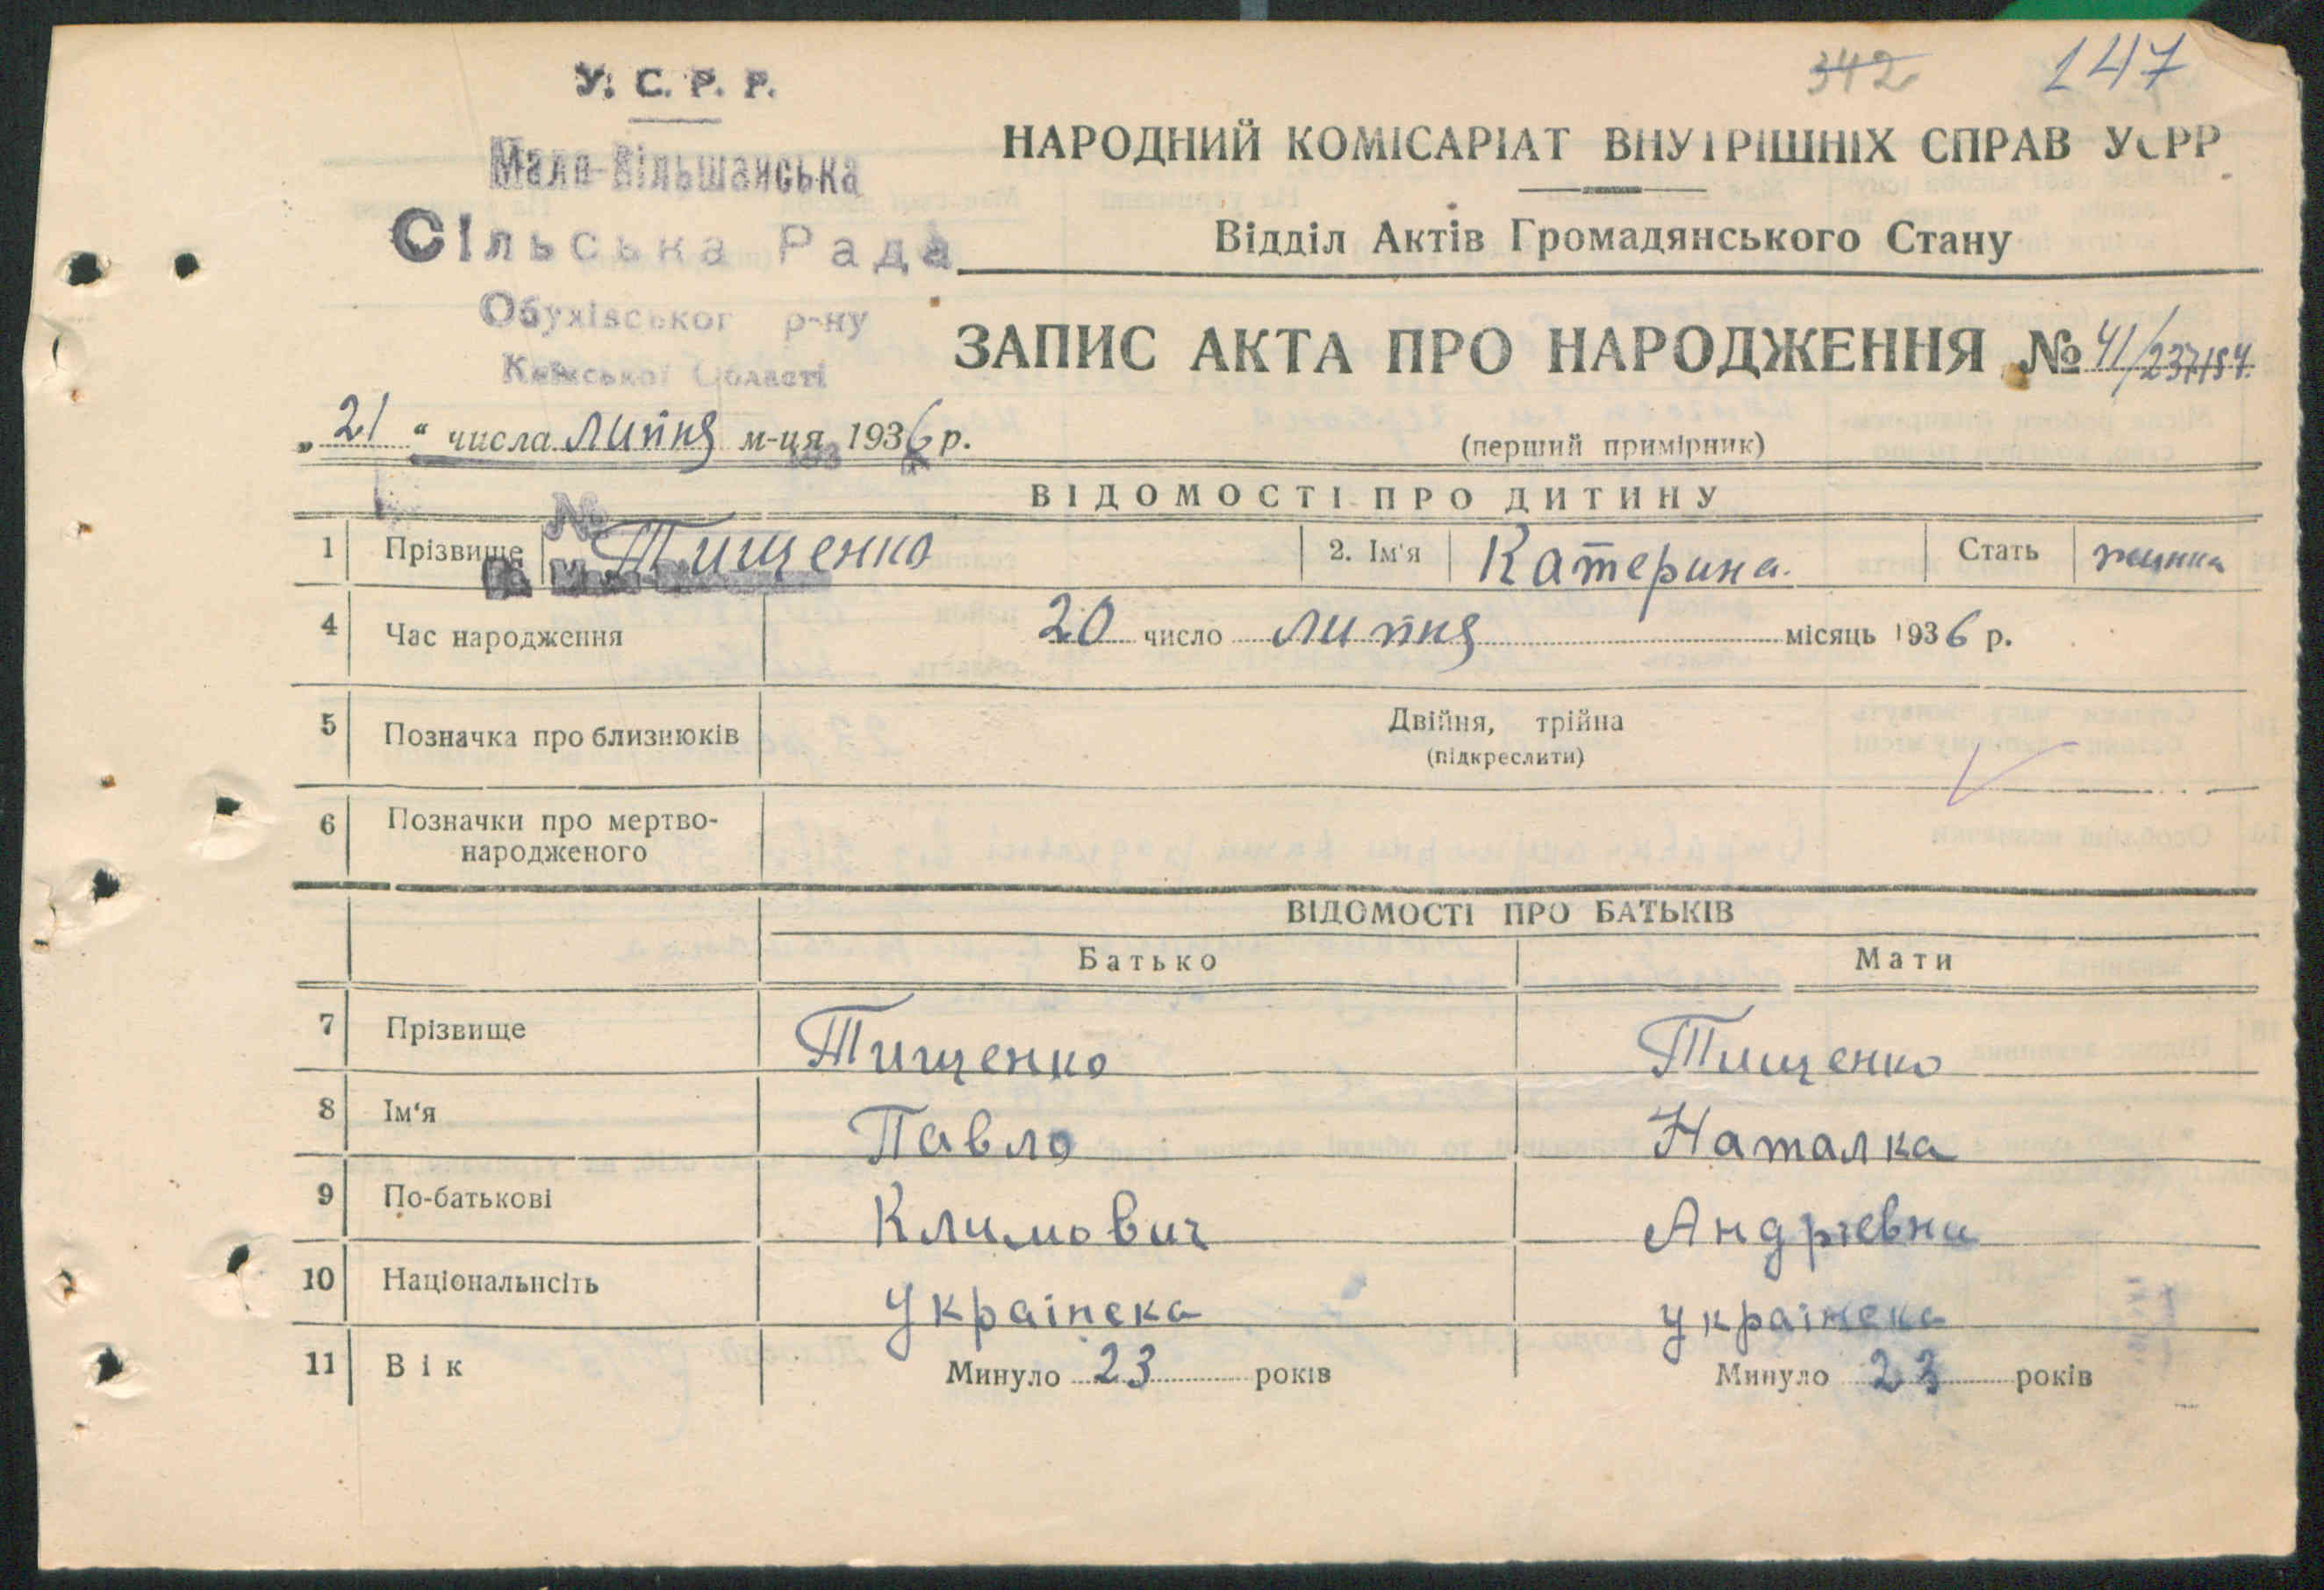 342 147
У. С. Р. Р.
Мало-Вільшанська
Сільська Рада
Обухівськог р-ну
Київської Області
НАРОДНИЙ КОМІСАРІАТ ВНУТРІШНІХ СПРАВ УСРР
Відділ Актів Громадянського Стану
ЗАПИС АКТА ПРО НАРОДЖЕННЯ № 41/237184.
„21“ числа липня м-ця 1936 р.
(перший примірник)
ВІДОМОСТІ ПРО ДИТИНУ
1 Прізвище Тищенко 2. Ім'я Катерина. Стать жінка
4 Час народження 20 число липня місяць 1936 р.
5 Позначка про близнюків Двійня, трійна
(підкреслити)
6 Позначки про мертво-
народженого
ВІДОМОСТІ ПРО БАТЬКІВ
Батько Мати
7 Прізвище Тищенко Тищенко
8 Ім'я Павло Наталка
9 По-батькові Климович Андрієвна
10 Національнсіть Українска українска
11 Вік Минуло 23 років Минуло 23 років